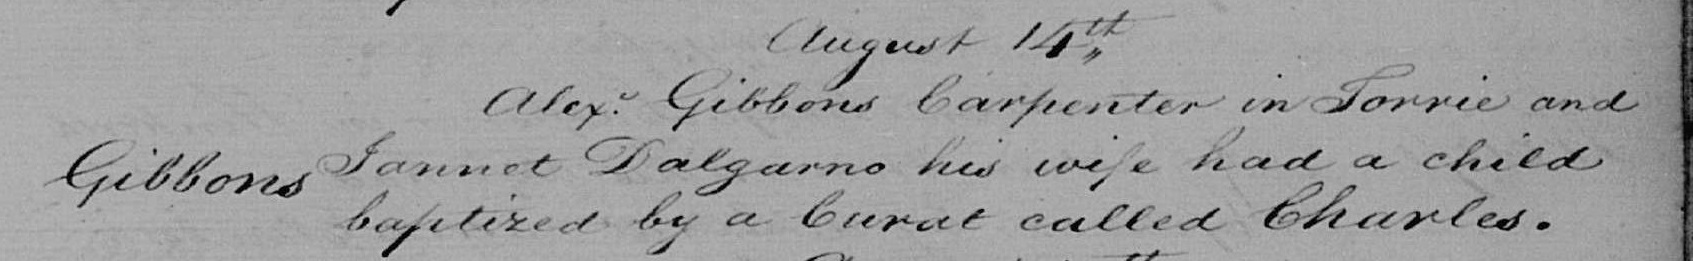 August 14th
Alexr. Gibbons Carpenter in Torrie and
Gibbons Jannet Dalgarno his wife had a child
baptized by a Curat called Charles.